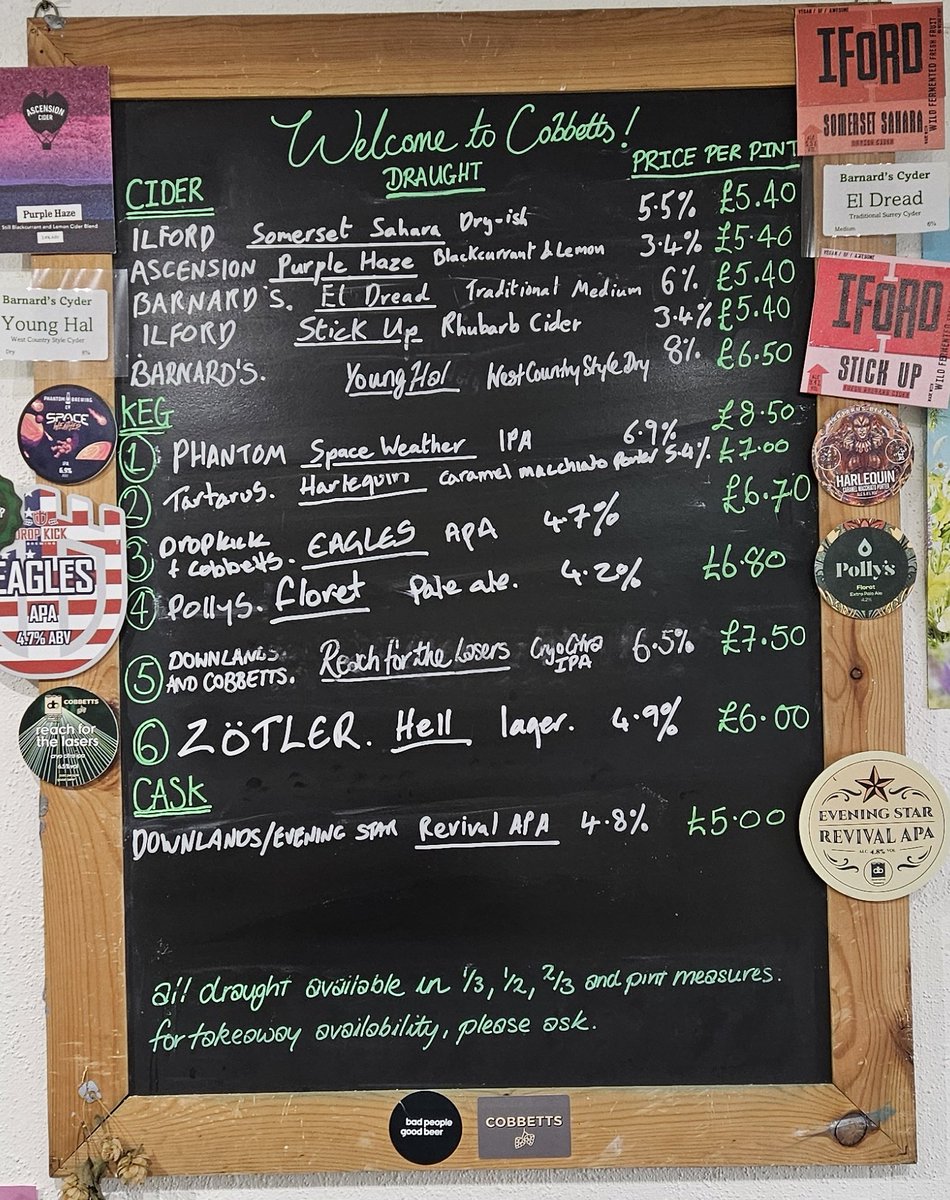 Welcome to Cobbetts!
DRAUGHT
PRICE PER PINT
CIDER
ILFORD Somerset Sahara Dry-ish 5.5% £5.40
ASCENSION Purple Haze Blackcurrant & Lemon 3.4% £5.40
BARNARD'S. El Dread Traditional Medium 6% £5.40
ILFORD Stick Up Rhubarb Cider 3.4% £5.40
BARNARD'S. Young Hal West Country Style Dry 8% £6.50
KEG
1 PHANTOM Space Weather IPA 6.9% £8.50
2 Tartarus. Harlequin caramel macchiato Porter 5.4% £7.00
3 Dropkick + Cobbetts. EAGLES APA 4.7% £6.70
4 Pollys. Floret Pale ale. 4.2% £6.80
5 DOWNLANDS AND COBBETTS. Reach for the Lasers Cryo Citra IPA 6.5% £7.50
6 ZÖTLER. Hell lager. 4.9% £6.00
CASK
DOWNLANDS/EVENING STAR Revival APA 4.8% £5.00
all draught available in 1/3, 1/2, 2/3 and pint measures.
for takeaway availability, please ask.
ASCENSION
CIDER
Purple Haze
Still Blackcurrant and Lemon Cider Blend
Barnard's Cyder
Young Hal
West Country Style Cyder
Dry 8%
PHANTOM BREWING
SPACE
WEATHER
IPA
6.9%
DROP KICK
BREWING
EAGLES
APA
4.7% ABV
COBBETTS
reach for
the lasers
IFORD
SOMERSET SAHARA
WILD FERMENTED FRESH FRUIT
Barnard's Cyder
El Dread
Traditional Surrey Cyder
Medium 6%
IFORD
STICK UP
WILD FERMENTE
HARLEQUIN
CARAMEL MACCHIATO PORTER
Polly's
Floret
Extra Pale Ale
4.2%
EVENING STAR
REVIVAL APA
ALC 4.8% VOL
db
bad people
good beer
COBBETTS